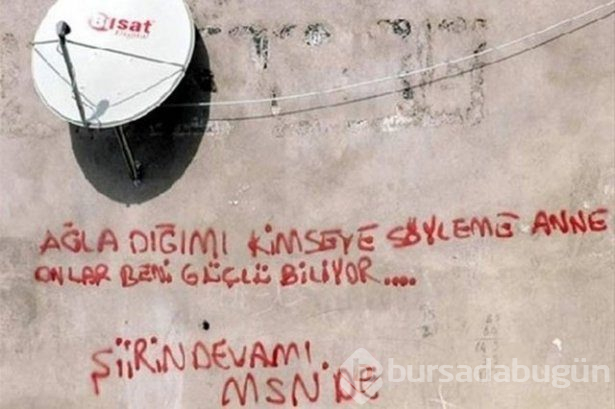 Bısat
AĞLA DIĞIMI KİMSEYE SÖYLEME ANNE
ONLAR BENİ GÜÇLÜ BİLİYOR....
ŞİİRİN DEVAMI
MSN'DE
bursadabugün